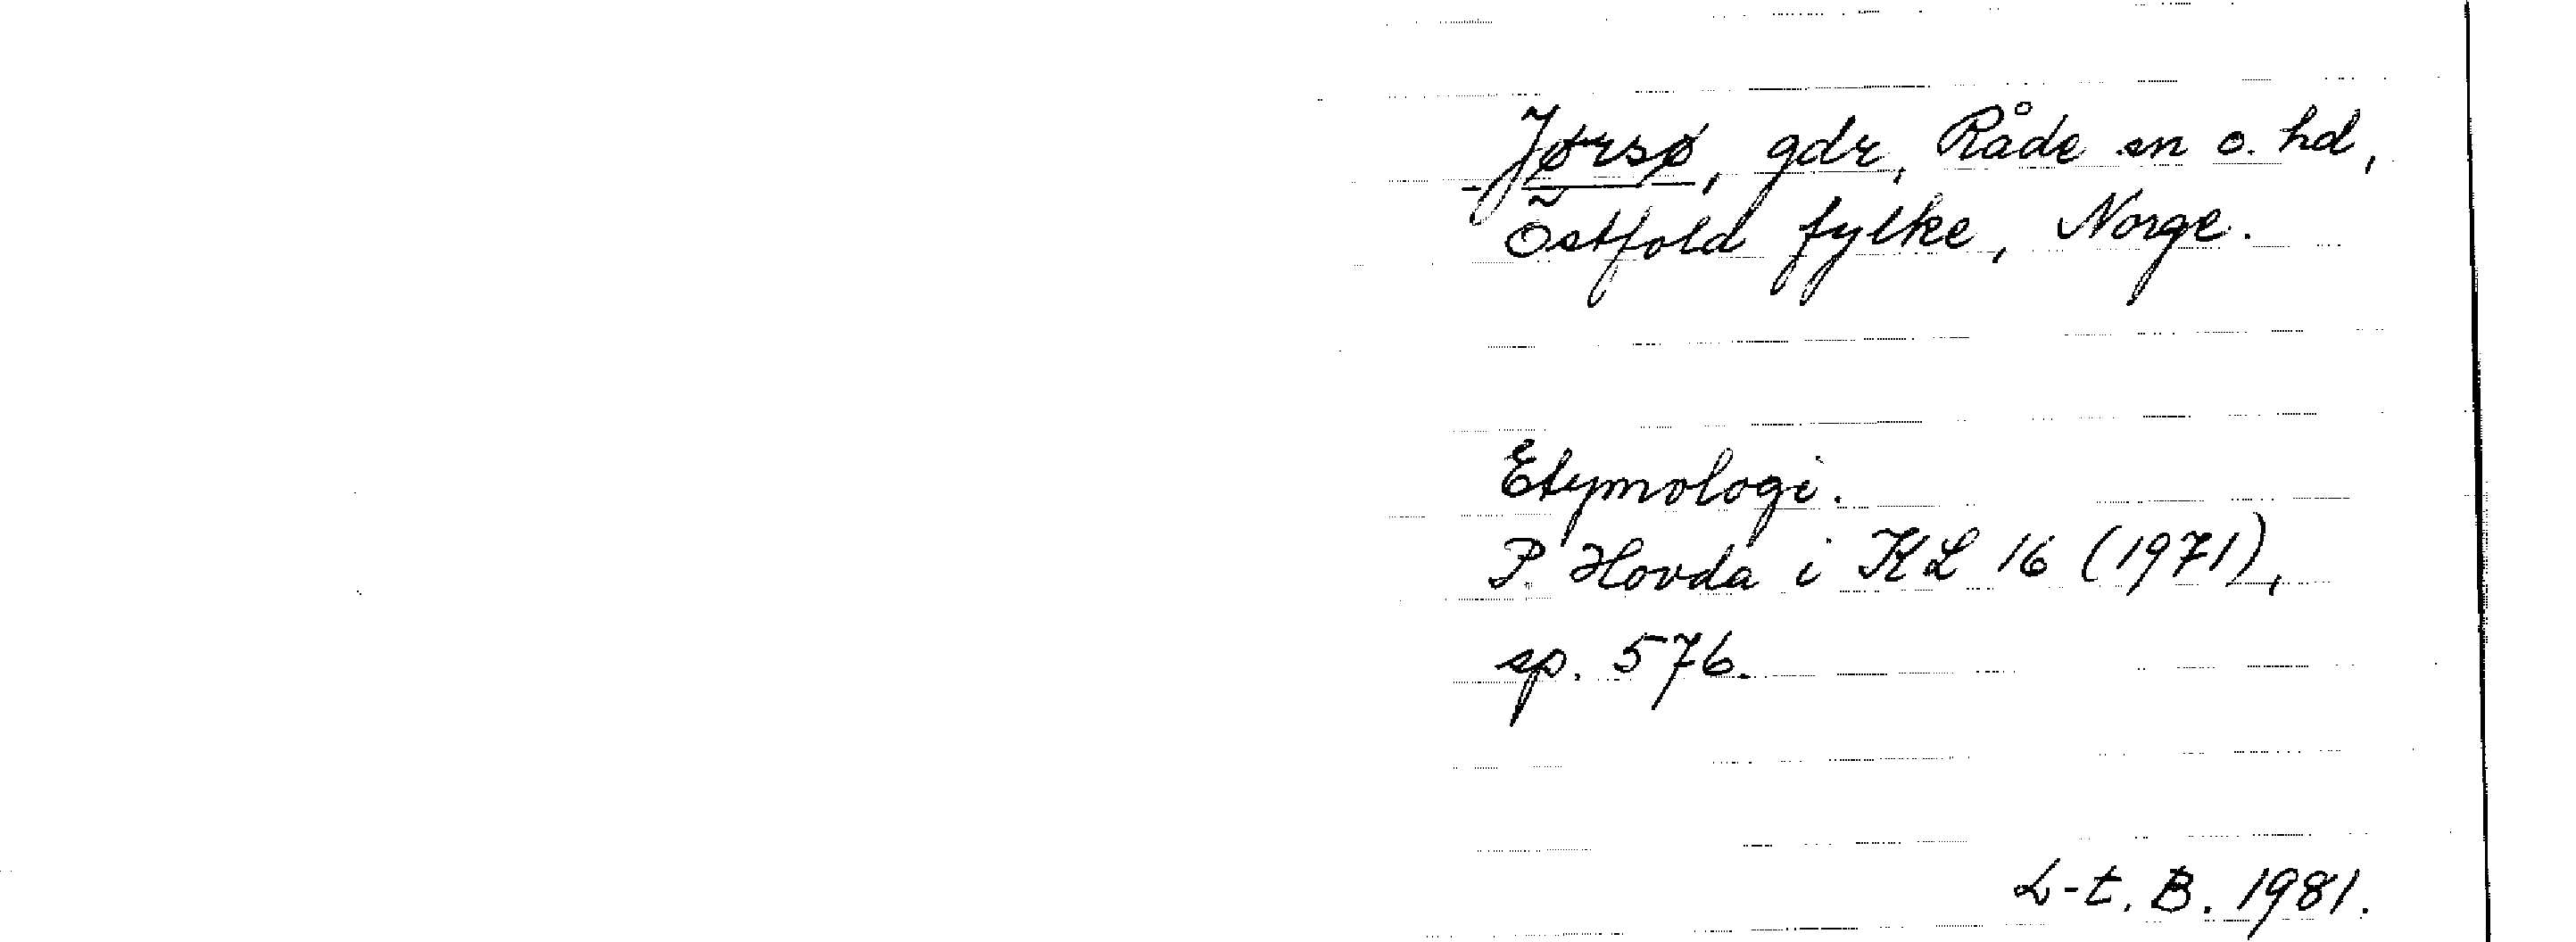 Jørsø, gdr, Råde sn o. hd,
Östfold fylke, Norge.
Etymologi.
P. Hovda i KL 16 (1971),
sp. 576.
L-t. B. 1981.